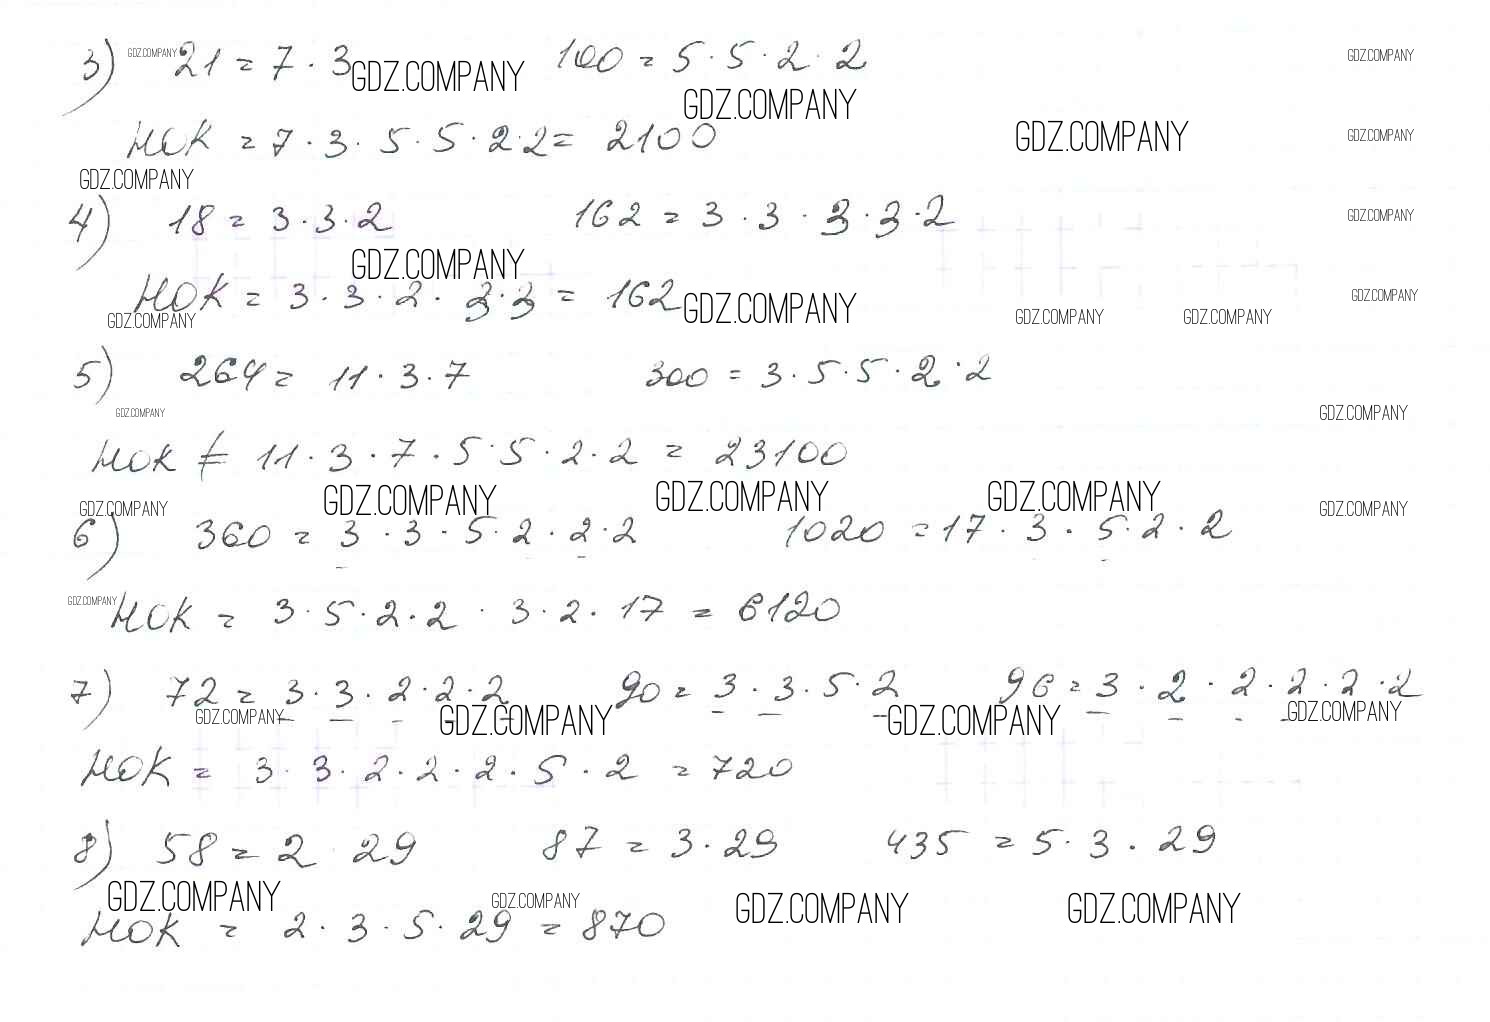 3) GDZ.COMPANY 21 = 7 · 3 GDZ.COMPANY 100 = 5 · 5 · 2 · 2 GDZ.COMPANY
GDZ.COMPANY
НОК = 7 · 3 · 5 · 5 · 2 · 2 = 2100 GDZ.COMPANY GDZ.COMPANY
GDZ.COMPANY
4) 18 = 3 · 3 · 2 162 = 3 · 3 · 3 · 3 · 2 GDZ.COMPANY
GDZ.COMPANY
НОК = 3 · 3 · 2 · 3 · 3 = 162 GDZ.COMPANY GDZ.COMPANY
GDZ.COMPANY GDZ.COMPANY GDZ.COMPANY
5) 264 = 11 · 3 · 7 300 = 3 · 5 · 5 · 2 · 2
GDZ.COMPANY GDZ.COMPANY
НОК = 11 · 3 · 7 · 5 · 5 · 2 · 2 = 23100
GDZ.COMPANY GDZ.COMPANY GDZ.COMPANY GDZ.COMPANY GDZ.COMPANY
6) 360 = 3 · 3 · 5 · 2 · 2 · 2 1020 = 17 · 3 · 5 · 2 · 2
GDZ.COMPANY НОК = 3 · 5 · 2 · 2 · 3 · 2 · 17 = 6120
7) 72 = 3 · 3 · 2 · 2 · 2 90 = 3 · 3 · 5 · 2 96 = 3 · 2 · 2 · 2 · 2 · 2
GDZ.COMPANY GDZ.COMPANY GDZ.COMPANY GDZ.COMPANY
НОК = 3 · 3 · 2 · 2 · 2 · 5 · 2 = 720
8) 58 = 2 · 29 87 = 3 · 29 435 = 5 · 3 · 29
GDZ.COMPANY GDZ.COMPANY GDZ.COMPANY GDZ.COMPANY
НОК = 2 · 3 · 5 · 29 = 870